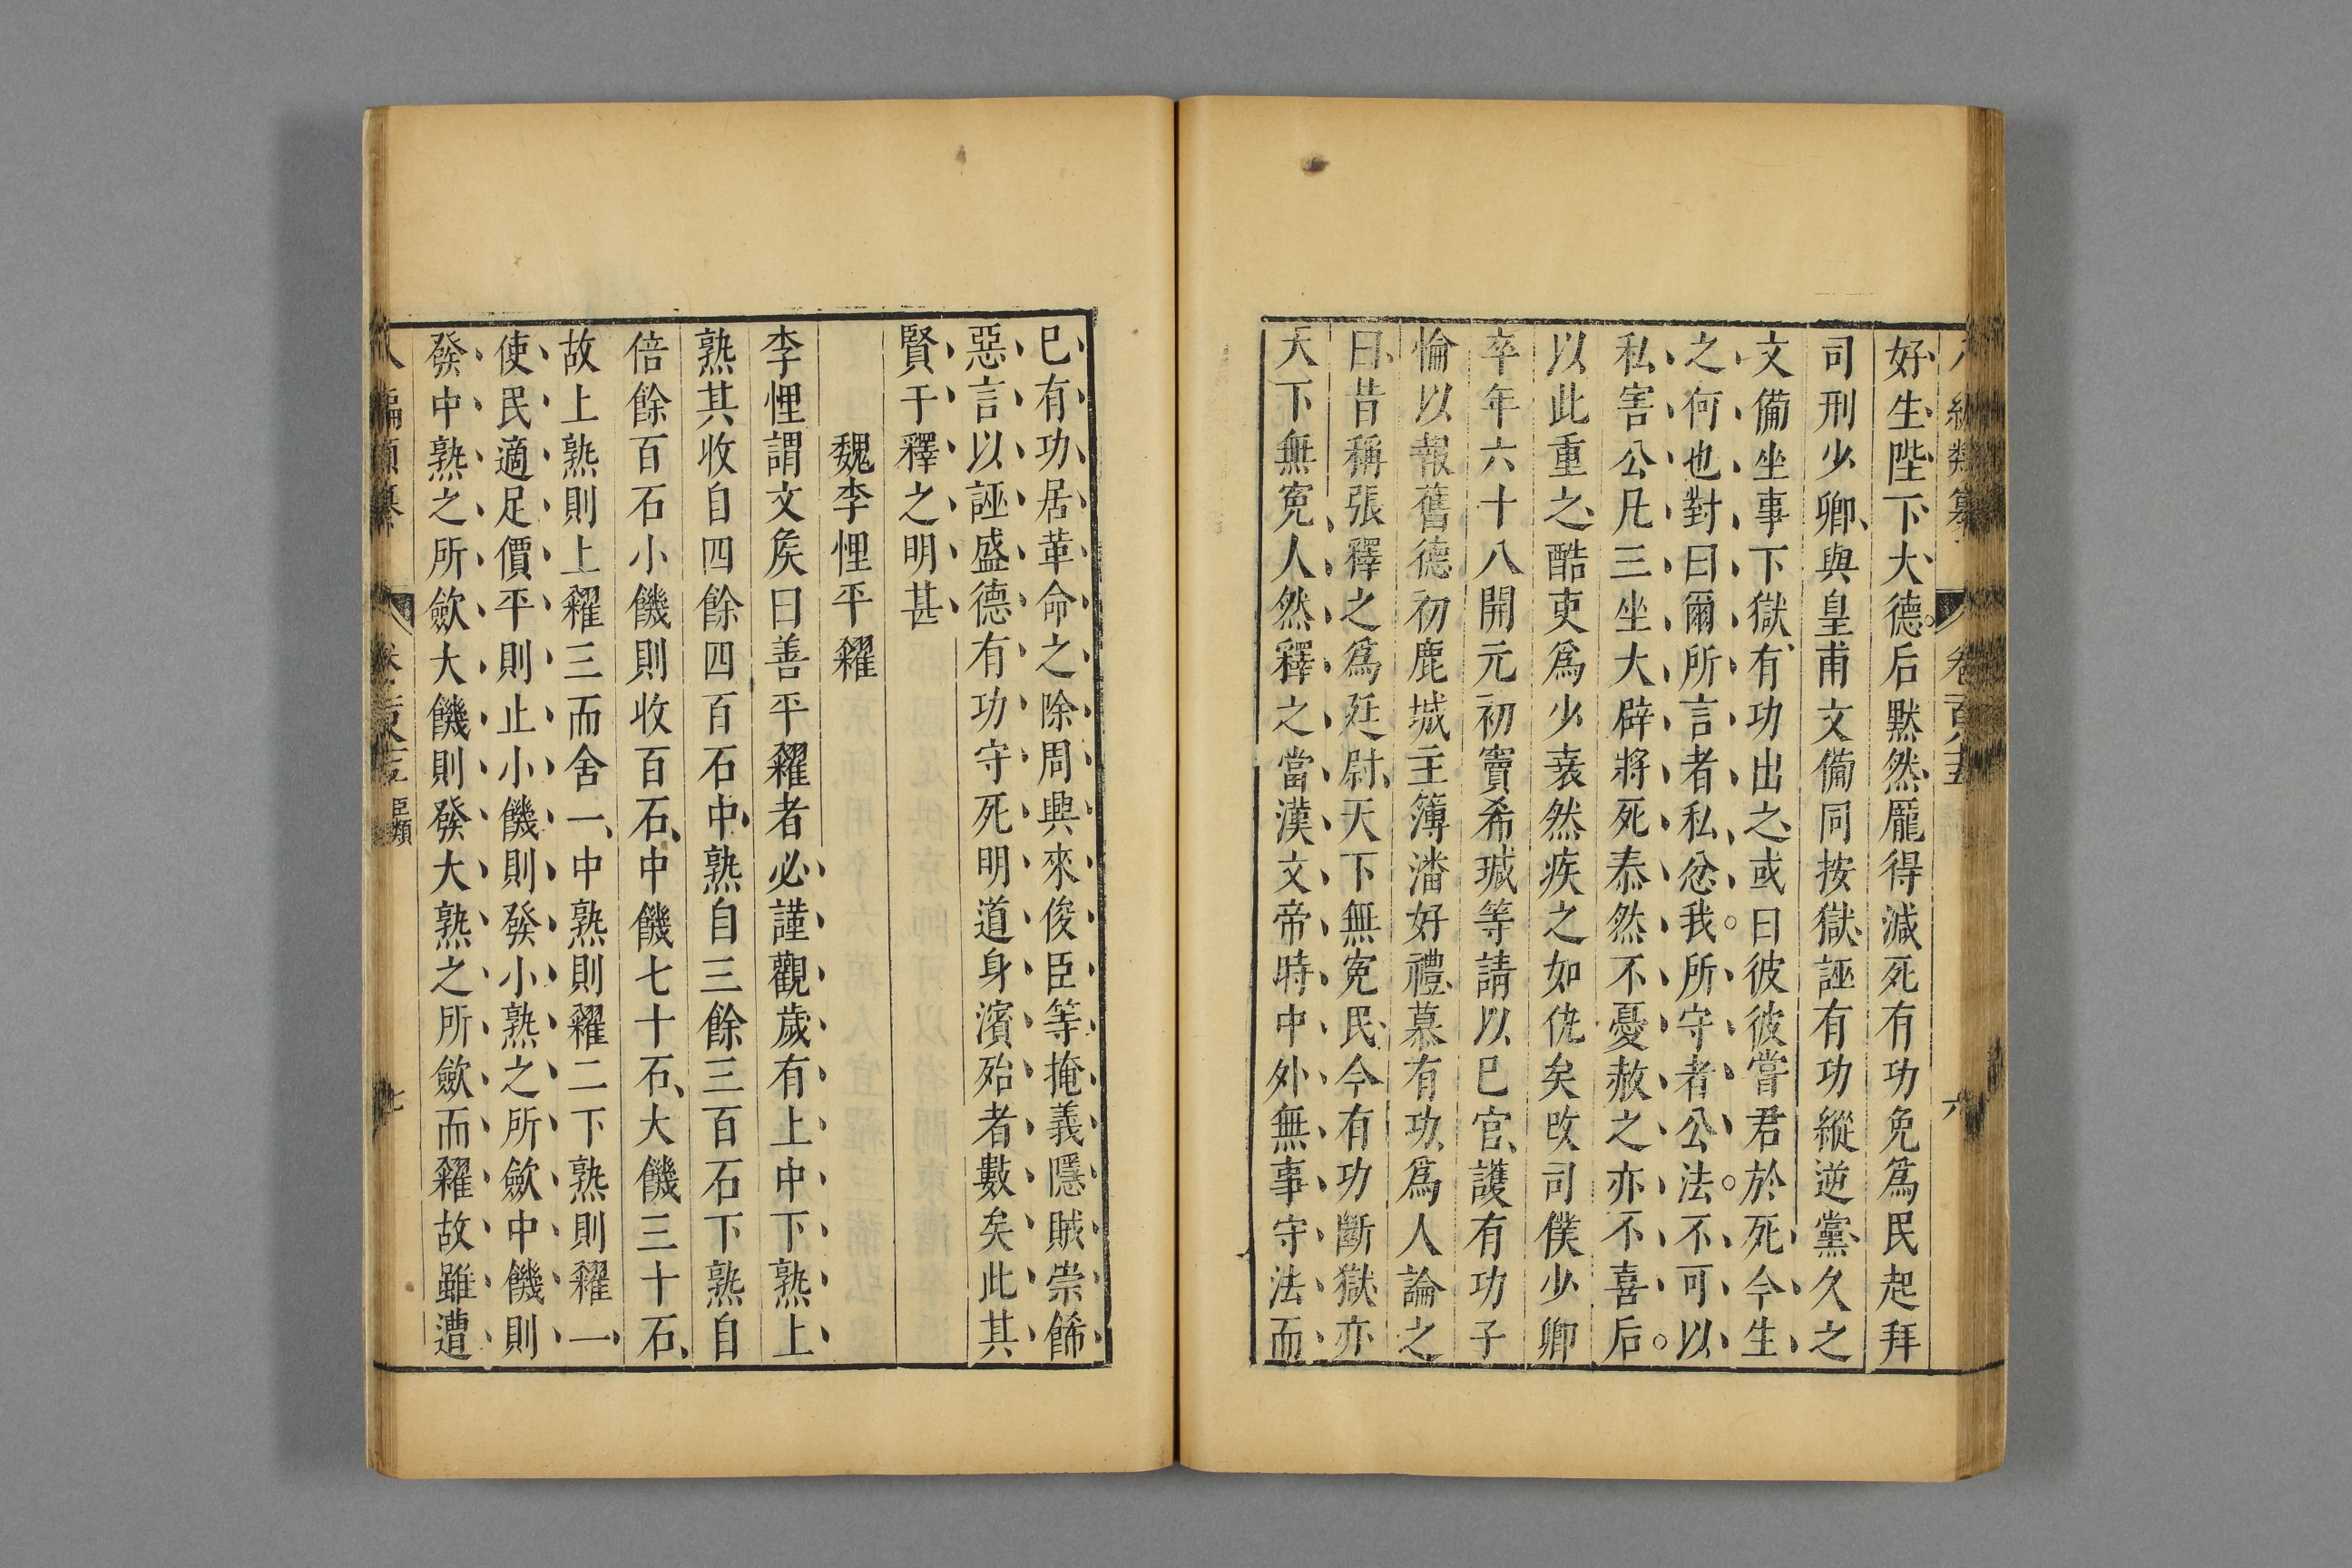 八編類纂 卷一百八十五 六
好生陛下大德后默然龐得減死有功免爲民起拜
司刑少卿與皇甫文備同按獄誣有功縱逆黨久之
文備坐事下獄有功出之或曰彼彼嘗君於死今生
之何也對曰爾所言者私忿我所守者公法不可以
私害公凡三坐大辟將死泰然不憂赦之亦不喜后
以此重之酷吏爲少衰然疾之如仇矣改司僕少卿
卒年六十八開元初竇希瑊等請以已官護有功子
惀以報舊德初鹿城主簿潘好禮慕有功爲人論之
曰昔稱張釋之爲廷尉天下無寃民今有功斷獄亦
天下無寃人然釋之當漢文帝時中外無事守法而
已有功居革命之除周興來俊臣等掩義隱賊崇飾
惡言以誣盛德有功守死明道身濱殆者數矣此其
賢于釋之明甚
魏李悝平糴
李悝謂文矦曰善平糴者必謹觀歲有上中下熟上
熟其收自四餘四百石中熟自三餘三百石下熟自
倍餘百石小饑則收百石中饑七十石大饑三十石
故上熟則上糴三而舍一中熟則糴二下熟則糴一
使民適足價平則止小饑則發小熟之所歛中饑則
發中熟之所歛大饑則發大熟之所歛而糴故雖遭
八編類纂 臣類 七